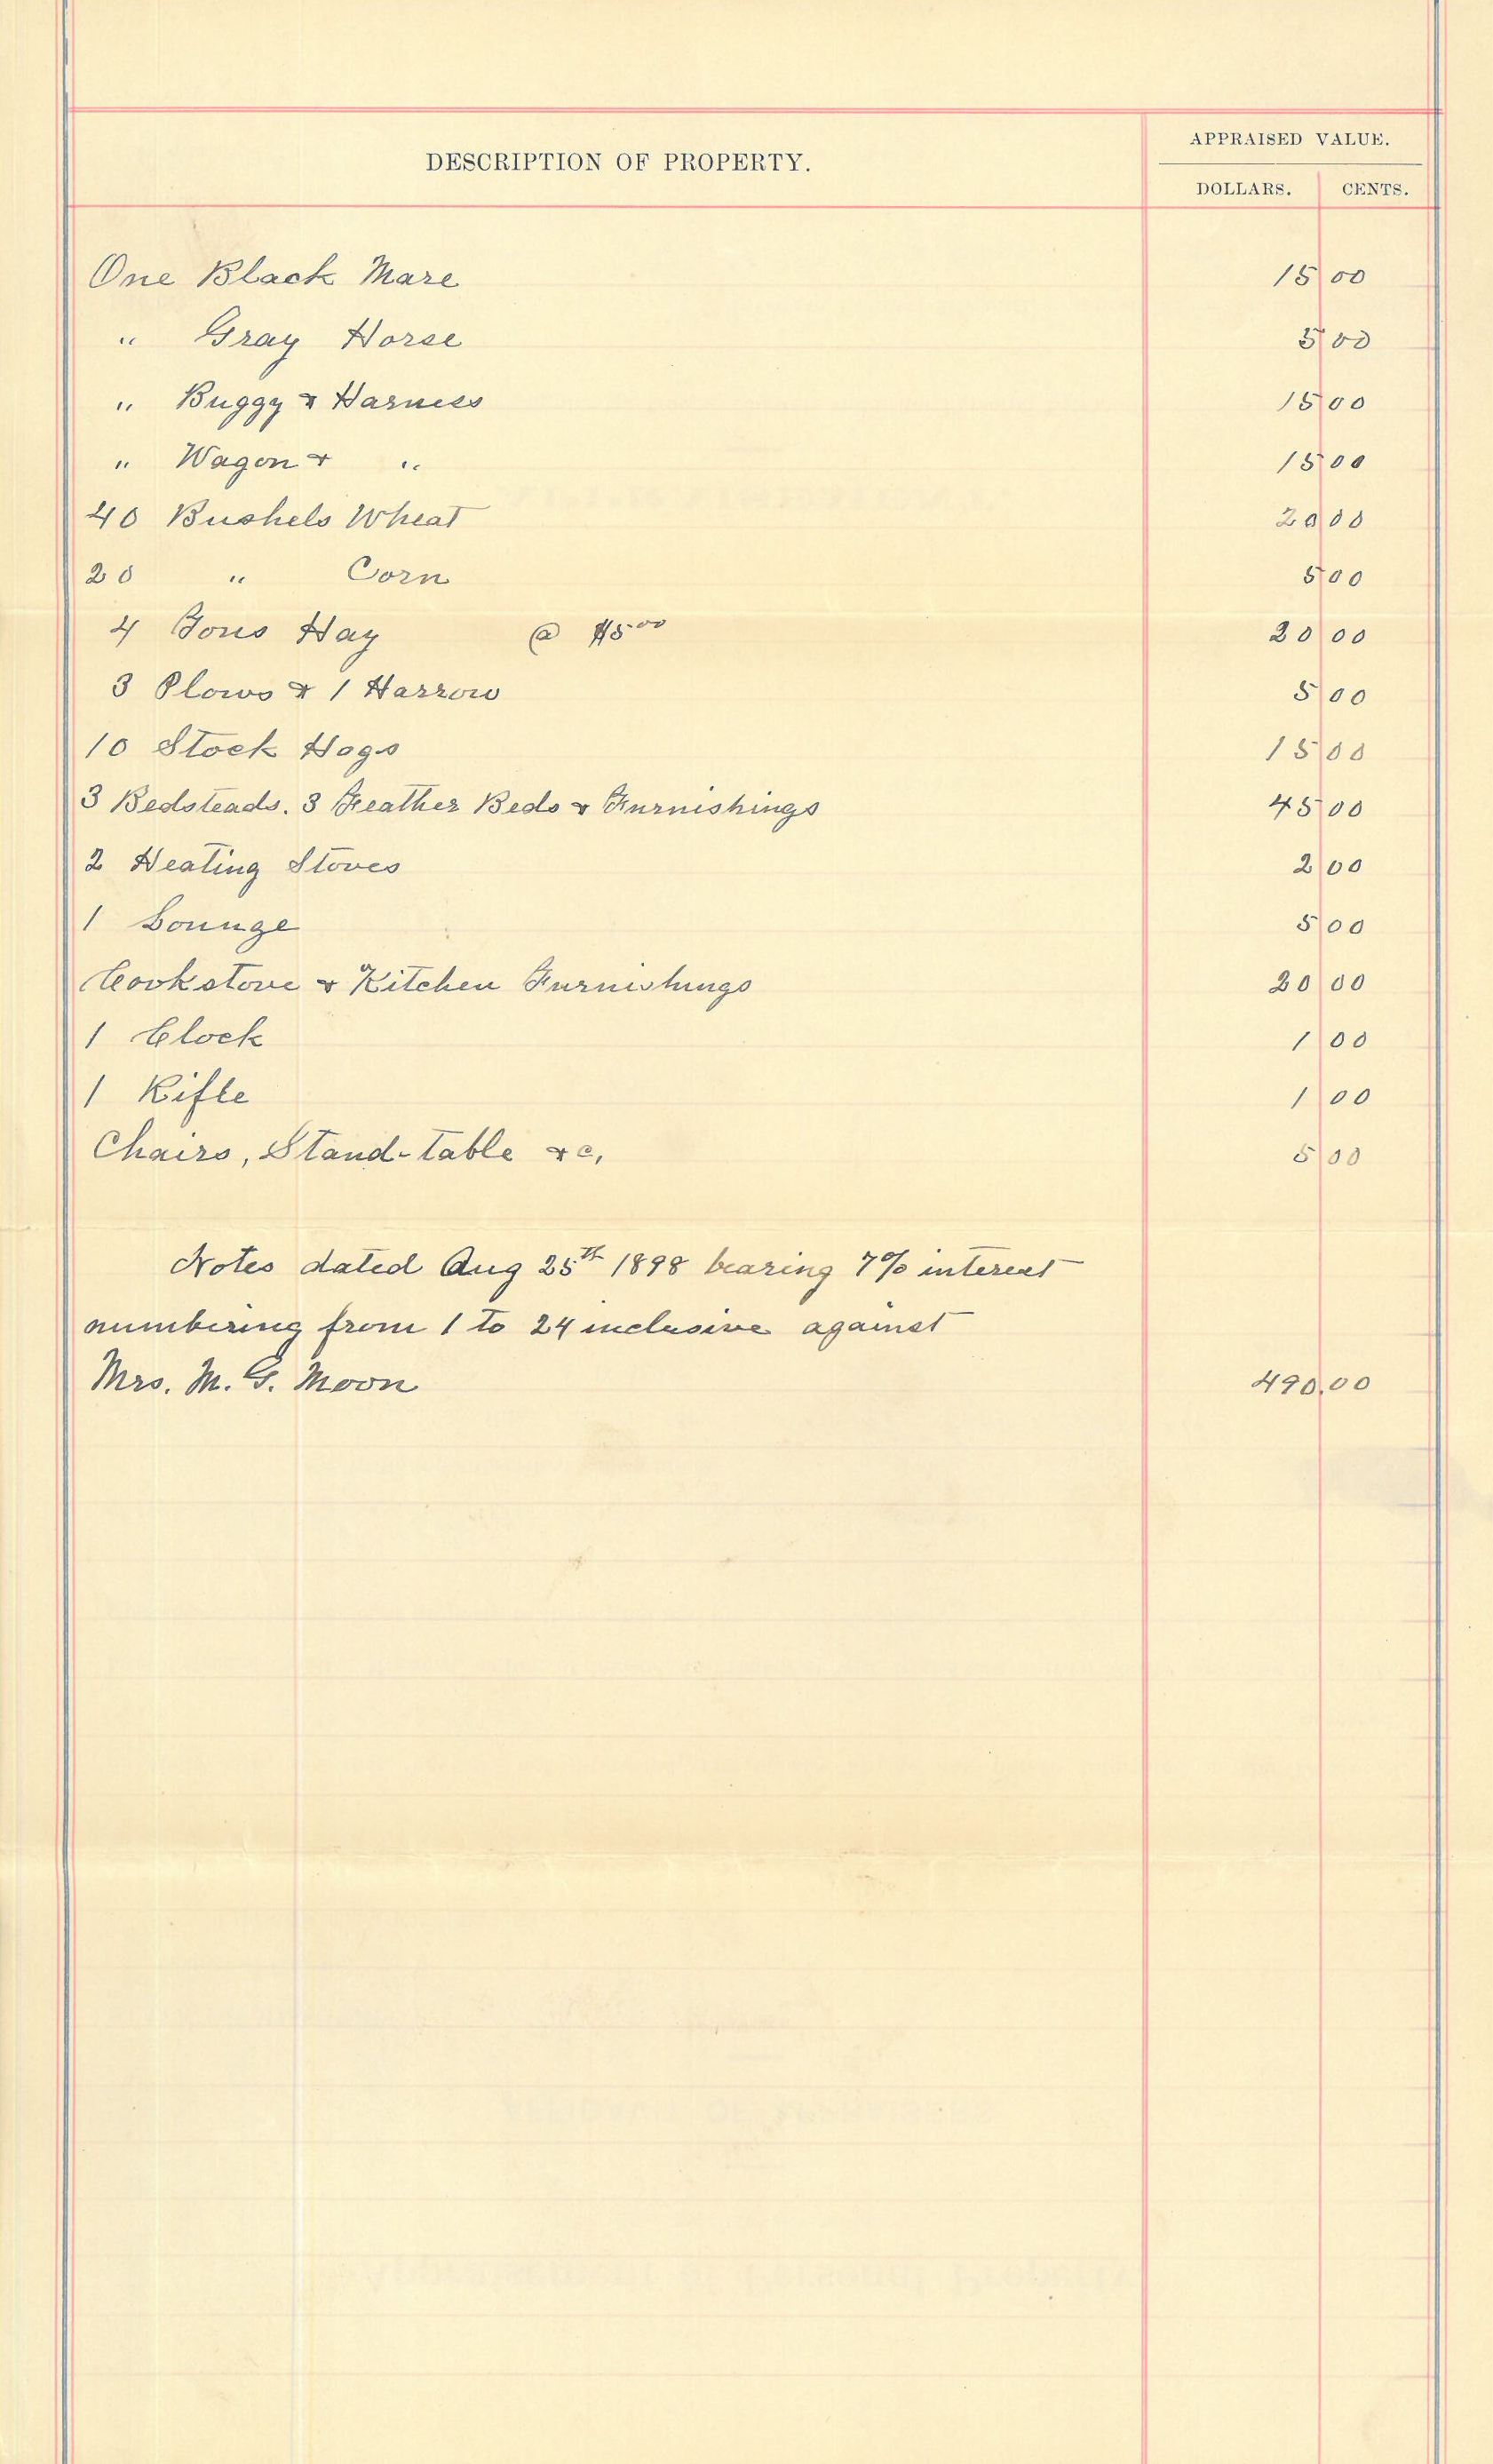 DESCRIPTION OF PROPERTY.
APPRAISED VALUE.
DOLLARS. CENTS.
One Black Mare 15 00
" Gray Horse 5 00
" Buggy & Harness 15 00
" Wagon & " 15 00
40 Bushels Wheat 20 00
20 " Corn 5 00
4 Tons Hay @ $5.00 20 00
3 Plows & 1 Harrow 5 00
10 Stock Hogs 15 00
3 Bedsteads. 3 Feather Beds & Furnishings 45 00
2 Heating Stoves 2 00
1 Lounge 5 00
Cookstove & Kitchen Furnishings 20 00
1 Clock 1 00
1 Rifle 1 00
Chairs, Stand-table &c, 5 00
Notes dated Aug 25th 1898 bearing 7% interest
numbering from 1 to 24 inclusive against
Mrs. M. G. Moon 490.00